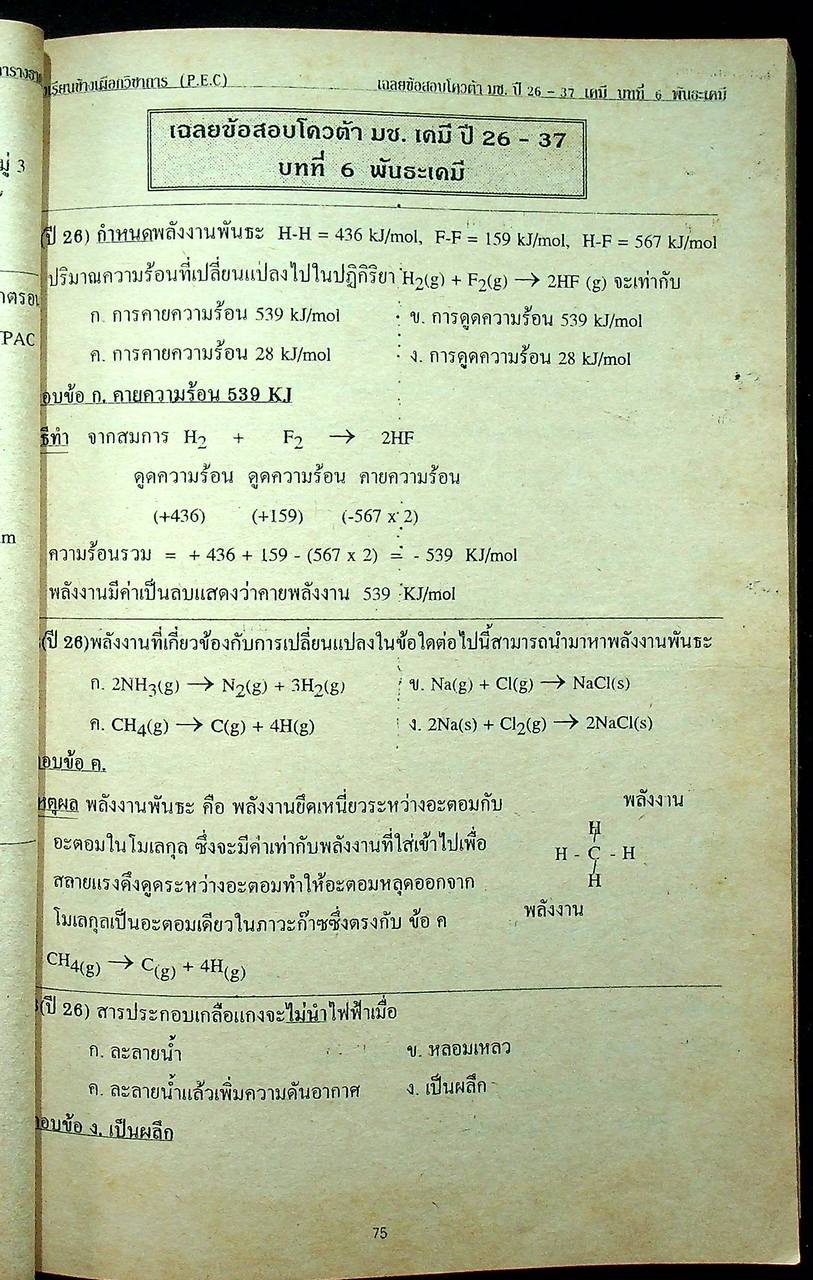 ารางธา
มู่ 3
าตรอบ
PAC
m
งเรียนช้างเผือกวิชาการ (P.E.C) เฉลยข้อสอบโควต้า มช. ปี 26 - 37 เคมี บทที่ 6 พันธะเคมี
เฉลยข้อสอบโควต้า มช. เคมี ปี 26 - 37
บทที่ 6 พันธะเคมี
(ปี 26) กำหนดพลังงานพันธะ H-H = 436 kJ/mol, F-F = 159 kJ/mol, H-F = 567 kJ/mol
ปริมาณความร้อนที่เปลี่ยนแปลงไปในปฏิกิริยา H₂(g) + F₂(g) → 2HF (g) จะเท่ากับ
ก. การคายความร้อน 539 kJ/mol ข. การดูดความร้อน 539 kJ/mol
ค. การคายความร้อน 28 kJ/mol ง. การดูดความร้อน 28 kJ/mol
อบข้อ ก. คายความร้อน 539 KJ
ธีทำ จากสมการ H₂ + F₂ → 2HF
ดูดความร้อน ดูดความร้อน คายความร้อน
(+436) (+159) (-567 x 2)
ความร้อนรวม = + 436 + 159 - (567 x 2) = - 539 KJ/mol
พลังงานมีค่าเป็นลบแสดงว่าคายพลังงาน 539 KJ/mol
(ปี 26)พลังงานที่เกี่ยวข้องกับการเปลี่ยนแปลงในข้อใดต่อไปนี้สามารถนำมาหาพลังงานพันธะ
ก. 2NH₃(g) → N₂(g) + 3H₂(g) ข. Na(g) + Cl(g) → NaCl(s)
ค. CH₄(g) → C(g) + 4H(g) ง. 2Na(s) + Cl₂(g) → 2NaCl(s)
อบข้อ ค.
หตุผล พลังงานพันธะ คือ พลังงานยึดเหนี่ยวระหว่างอะตอมกับ พลังงาน
H
อะตอมในโมเลกุล ซึ่งจะมีค่าเท่ากับพลังงานที่ใส่เข้าไปเพื่อ H - C - H
สลายแรงดึงดูดระหว่างอะตอมทำให้อะตอมหลุดออกจาก H
โมเลกุลเป็นอะตอมเดียวในภาวะก๊าซซึ่งตรงกับ ข้อ ค พลังงาน
CH₄(g) → C(g) + 4H(g)
(ปี 26) สารประกอบเกลือแกงจะไม่นำไฟฟ้าเมื่อ
ก. ละลายน้ำ ข. หลอมเหลว
ค. ละลายน้ำแล้วเพิ่มความดันอากาศ ง. เป็นผลึก
อบข้อ ง. เป็นผลึก
75